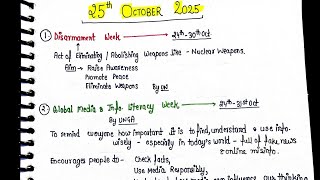 25th OCTOBER 2025
① Disarmament Week → 24th-30th Oct
Act of Eliminating / Abolishing Weapons like - Nuclear Weapons.
Aim → Raise Awareness
Promote Peace
Eliminate Weapons By UN
② Global Media & Info. Literacy Week → 24th-31st Oct
By UNGA
To remind everyone how important it is to find, understand & use info.
wisely - especially in today's world - full of fake news
& online misinfo.
Encourages people to- Check facts,
Use Media Responsibly,
how media can influence our thinking